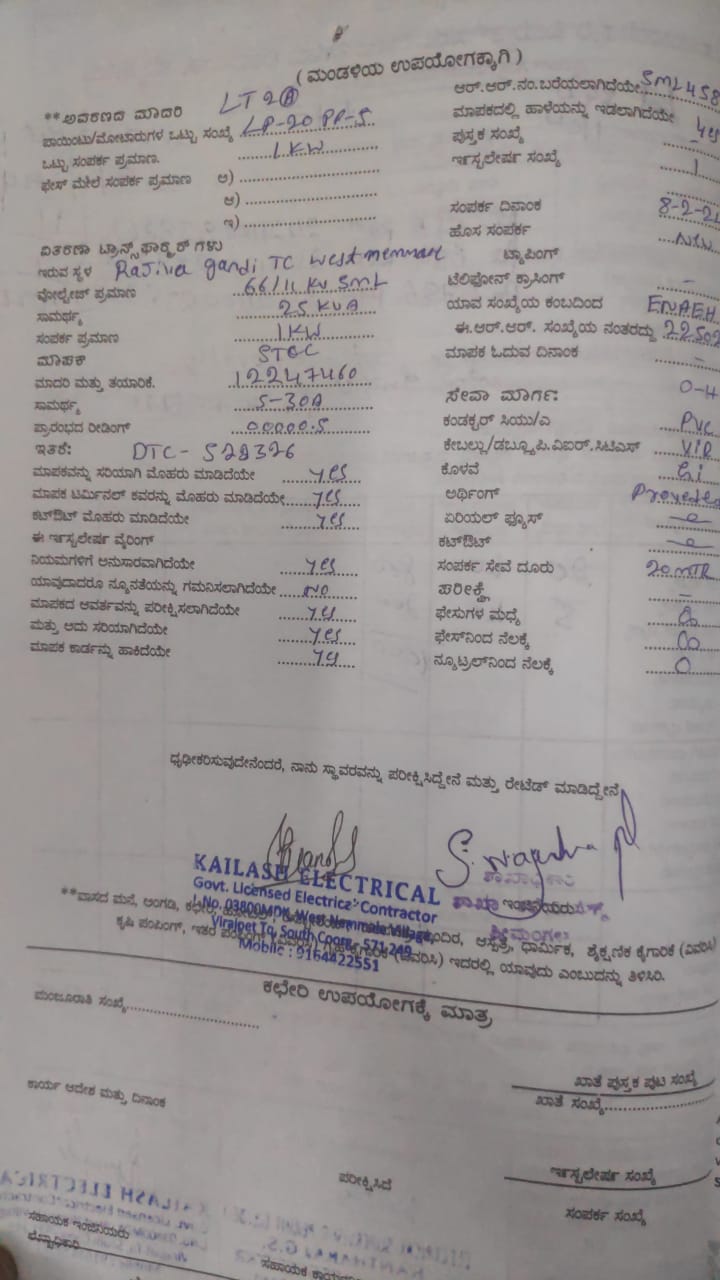 ( ಮಂಡಳಿಯ ಉಪಯೋಗಕ್ಕಾಗಿ )
**ಆವರಣದ ಮಾದರಿ LT 2(a)
ಪಾಯಿಂಟು/ಮೋಟಾರುಗಳ ಒಟ್ಟು ಸಂಖ್ಯೆ LP-20 PP-5
ಒಟ್ಟು ಸಂಪರ್ಕ ಪ್ರಮಾಣ. 1 KW
ಫೇಸ್ ಮೇಲೆ ಸಂಪರ್ಕ ಪ್ರಮಾಣ ಅ)
ಆ)
ಇ)
ವಿತರಣಾ ಟ್ರಾನ್ಸ್‌ಫಾರ್ಮರ್ ಗಳು
ಇರುವ ಸ್ಥಳ Rajiva gandi TC West nemmale
ವೋಲ್ಟೇಜ್ ಪ್ರಮಾಣ 66/11 KV SML
ಸಾಮರ್ಥ್ಯ 25 KVA
ಸಂಪರ್ಕ ಪ್ರಮಾಣ 1KW
ಮಾಪಕ
ಮಾದರಿ ಮತ್ತು ತಯಾರಿಕೆ. 12247460
ಸಾಮರ್ಥ್ಯ 5-30A
ಪ್ರಾರಂಭದ ರೀಡಿಂಗ್ 00000.5
ಇತರೆ: DTC - 528326
ಮಾಪಕವನ್ನು ಸರಿಯಾಗಿ ಮೊಹರು ಮಾಡಿದೆಯೇ yes
ಮಾಪಕ ಟರ್ಮಿನಲ್ ಕವರನ್ನು ಮೊಹರು ಮಾಡಿದೆಯೇ yes
ಕಟ್‌ಔಟ್ ಮೊಹರು ಮಾಡಿದೆಯೇ yes
ಈ ಇನ್ಸ್ಟಲೇಷನ್ ವೈರಿಂಗ್
ನಿಯಮಗಳಿಗೆ ಅನುಸಾರವಾಗಿದೆಯೇ yes
ಯಾವುದಾದರೂ ನ್ಯೂನತೆಯನ್ನು ಗಮನಿಸಲಾಗಿದೆಯೇ NO
ಮಾಪಕದ ಆವರ್ತವನ್ನು ಪರೀಕ್ಷಿಸಲಾಗಿದೆಯೇ yes
ಮತ್ತು ಅದು ಸರಿಯಾಗಿದೆಯೇ yes
ಮಾಪಕ ಕಾರ್ಡನ್ನು ಹಾಕಿದೆಯೇ yes
ಆರ್.ಆರ್.ನಂ.ಬರೆಯಲಾಗಿದೆಯೇ SML458
ಮಾಪಕದಲ್ಲಿ ಹಾಳೆಯನ್ನು ಇಡಲಾಗಿದೆಯೇ yes
ಪುಸ್ತಕ ಸಂಖ್ಯೆ
ಇನ್ಸ್ಟಲೇಷನ್ ಸಂಖ್ಯೆ 1
ಸಂಪರ್ಕ ದಿನಾಂಕ 8-2-21
ಹೊಸ ಸಂಪರ್ಕ
ಟ್ಯಾಪಿಂಗ್
ಟೆಲಿಫೋನ್ ಕ್ರಾಸಿಂಗ್ -
ಯಾವ ಸಂಖ್ಯೆಯ ಕಂಬದಿಂದ ENAEH
ಈ.ಆರ್.ಆರ್. ಸಂಖ್ಯೆಯ ನಂತರದ್ದು 22502
ಮಾಪಕ ಓದುವ ದಿನಾಂಕ -
ಸೇವಾ ಮಾರ್ಗ: 0-4
ಕಂಡಕ್ಟರ್ ಸಿಯು/ಎ PVC
ಕೇಬಲ್ಲು/ಡಬ್ಲ್ಯೂಪಿ.ವಿಐಆರ್.ಸಿಟಿಎಸ್ VIR
ಕೊಳವೆ Gi
ಅರ್ಥಿಂಗ್
ಏರಿಯಲ್ ಫ್ಯೂಸ್
ಕಟ್‌ಔಟ್
ಸಂಪರ್ಕ ಸೇವೆ ದೂರು 20 MTR
ಪರೀಕ್ಷೆ -
ಫೇಸುಗಳ ಮಧ್ಯೆ
ಫೇಸ್‌ನಿಂದ ನೆಲಕ್ಕೆ
ನ್ಯೂಟ್ರಲ್‌ನಿಂದ ನೆಲಕ್ಕೆ 0
ಧೃಢೀಕರಿಸುವುದೇನೆಂದರೆ, ನಾನು ಸ್ಥಾವರವನ್ನು ಪರೀಕ್ಷಿಸಿದ್ದೇನೆ ಮತ್ತು ರೇಟೆಡ್ ಮಾಡಿದ್ದೇನೆ
KAILASH ELECTRICAL
Govt. Licensed Electrical Contractor
No. 03800MDK, West Nemmale Village,
Virajpet Tq, South Coorg - 571 249
Mobile : 9164422551
ಇಂಜಿನಿಯರು
ಶ್ರೀಮಂಗಲ
**ವಾಸದ ಮನೆ, ಅಂಗಡಿ, ಕಛೇರಿ, ಆಸ್ಪತ್ರೆ, ಧಾರ್ಮಿಕ, ಶೈಕ್ಷಣಿಕ ಕೈಗಾರಿಕೆ (ವಿವರಿಸಿ)
ಕೃಷಿ ಪಂಪಿಂಗ್, ಇತರ ಪಂಪಿಂಗ್ (ವಿವರಿಸಿ) ಇದರಲ್ಲಿ ಯಾವುದು ಎಂಬುದನ್ನು ತಿಳಿಸಿರಿ.
ಕಛೇರಿ ಉಪಯೋಗಕ್ಕೆ ಮಾತ್ರ
ಮಂಜೂರಾತಿ ಸಂಖ್ಯೆ
ಖಾತೆ ಪುಸ್ತಕ ಪುಟ ಸಂಖ್ಯೆ
ಖಾತೆ ಸಂಖ್ಯೆ
ಕಾರ್ಯ ಆದೇಶ ಮತ್ತು ದಿನಾಂಕ
ಪರೀಕ್ಷಿಸಿದೆ
ಇನ್ಸ್ಟಲೇಷನ್ ಸಂಖ್ಯೆ
ಸಂಪರ್ಕ ಸಂಖ್ಯೆ
ಸಹಾಯಕ ಇಂಜಿನಿಯರು